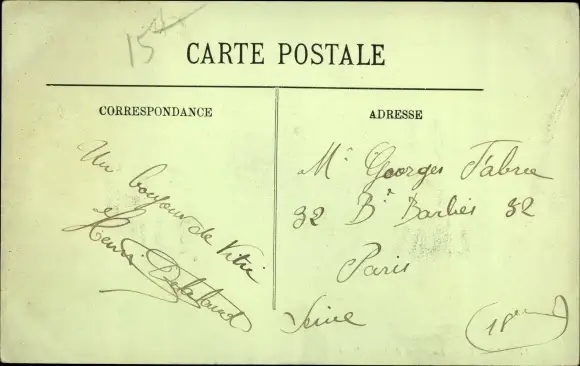 15
CARTE POSTALE
CORRESPONDANCE
Un bonjour de Vitré
Henri Delaland
ADRESSE
Mr Georges Fabre
32 Bd Barbès 32
Paris
Seine